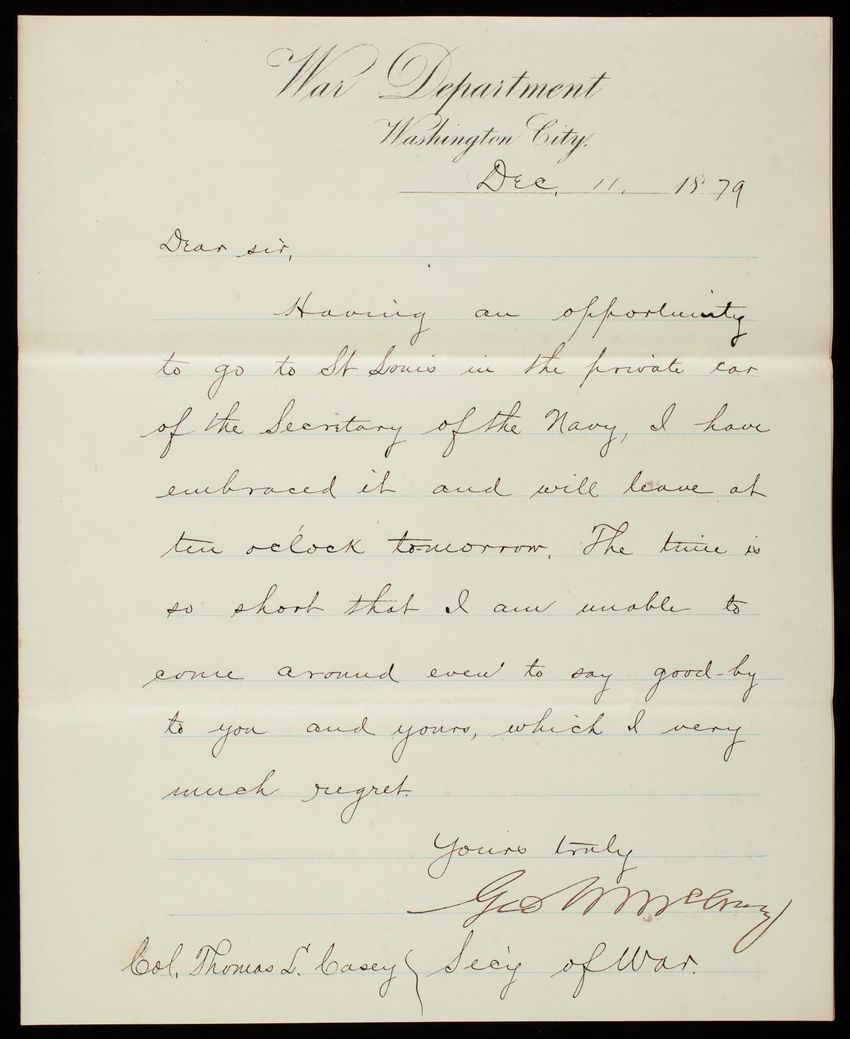 War Department
Washington City.
Dec. 11. 1879
Dear sir,
Having an opportunity
to go to St Louis in the private car
of the Secretary of the Navy, I have
embraced it and will leave at
ten o'clock tomorrow. The time is
so short that I am unable to
come around even to say good-by
to you and yours, which I very
much regret.
Yours truly
Geo W McCrary
Col. Thomas L. Casey } Sec'y of War.